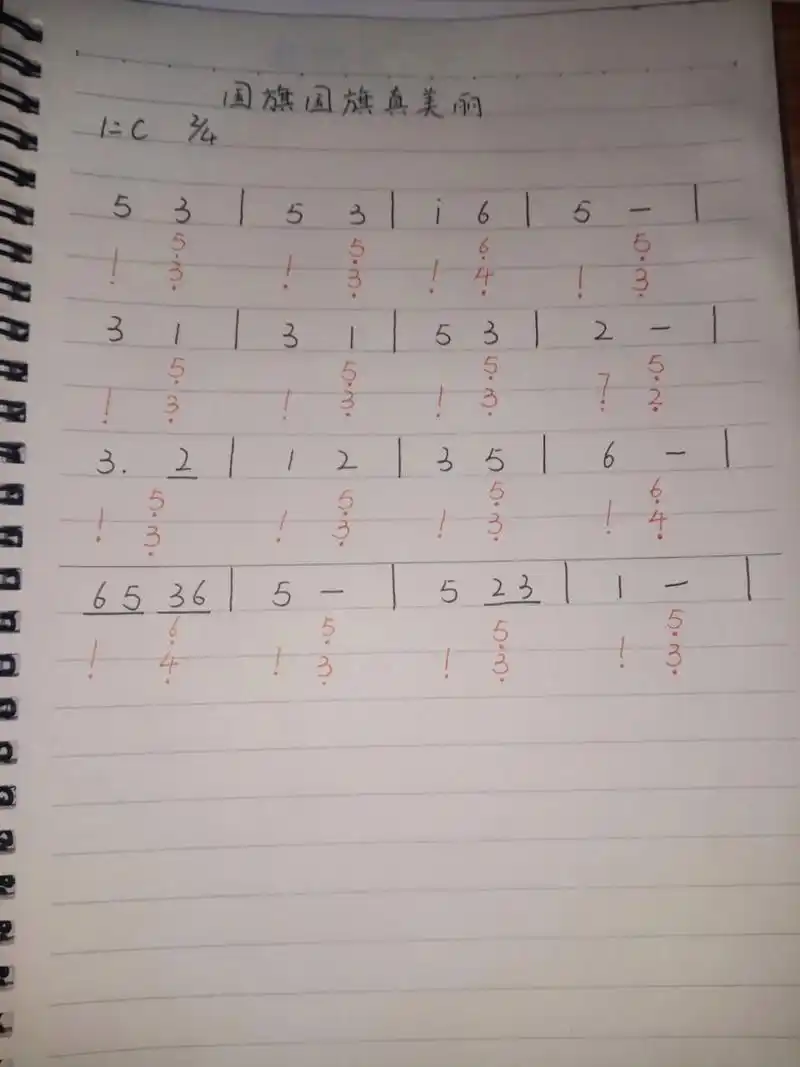 国旗国旗真美丽
1=C 2/4
5 3 | 5 3 | i 6 | 5 — |
5 5 6 5
1 3 1 3 1 4 1 3
3 1 | 3 1 | 5 3 | 2 — |
5 5 5 5
1 3 1 3 1 3 7 2
3. 2 | 1 2 | 3 5 | 6 — |
5 5 5 6
1 3 1 3 1 3 1 4
65 36 | 5 — | 5 23 | 1 — |
6 5 5 5
1 4 1 3 1 3 1 3